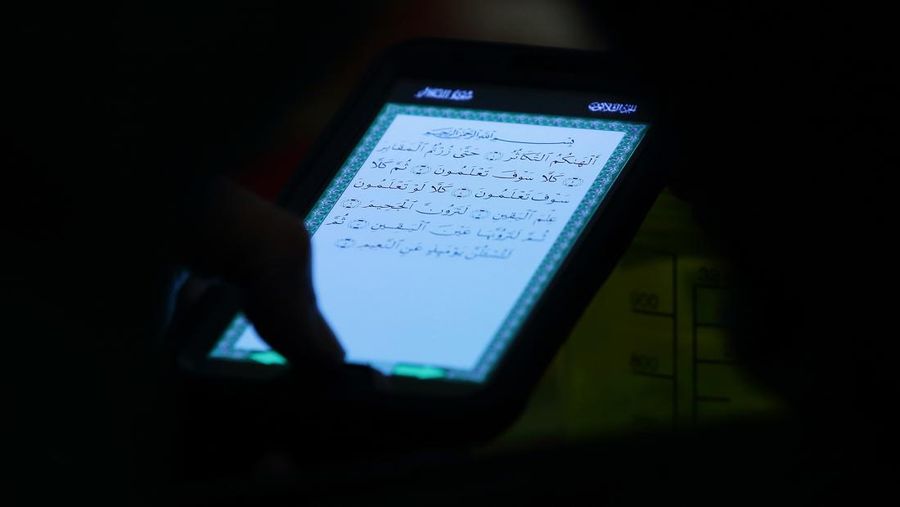 سورة التكاثر
الجزء الثلاثون
بِسْمِ ٱللَّهِ ٱلرَّحْمَٰنِ ٱلرَّحِيمِ
أَلْهَىٰكُمُ ٱلتَّكَاثُرُ ۝ حَتَّىٰ زُرْتُمُ ٱلْمَقَابِرَ
۝ كَلَّا سَوْفَ تَعْلَمُونَ ۝ ثُمَّ كَلَّا
سَوْفَ تَعْلَمُونَ ۝ كَلَّا لَوْ تَعْلَمُونَ
عِلْمَ ٱلْيَقِينِ ۝ لَتَرَوُنَّ ٱلْجَحِيمَ ۝
ثُمَّ لَتَرَوُنَّهَا عَيْنَ ٱلْيَقِينِ ۝ ثُمَّ
لَتُسْـَٔلُنَّ يَوْمَئِذٍ عَنِ ٱلنَّعِيمِ ۝
900
800